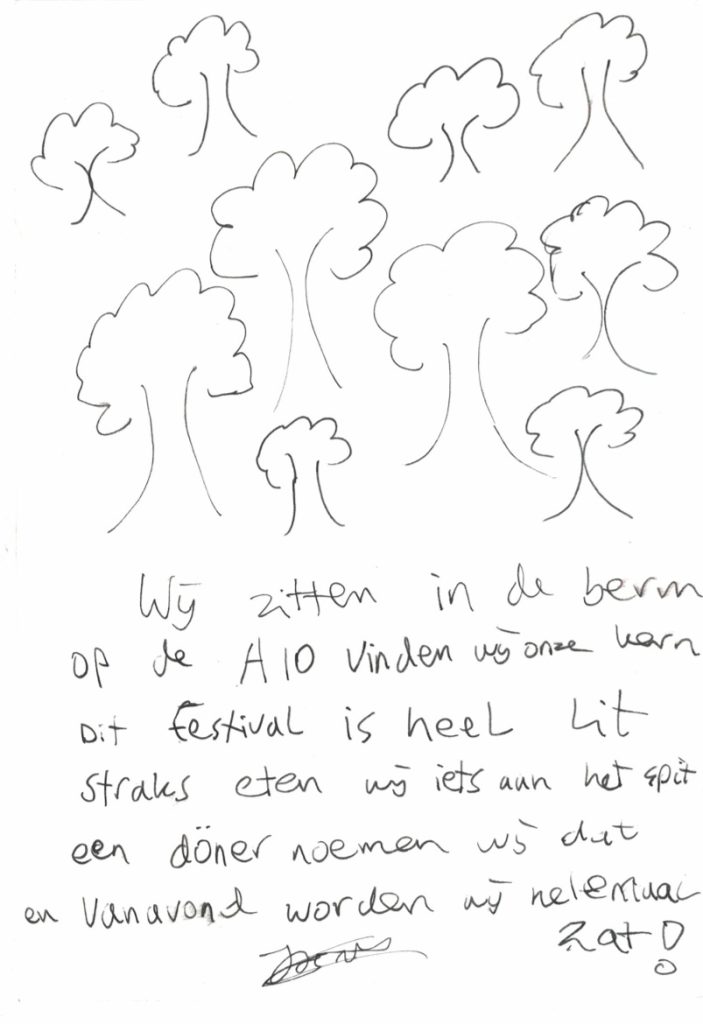 Wij zitten in de berm
op de A10 vinden wij onze kern
Dit festival is heel lit
straks eten wij iets aan het spit
een döner noemen wij dat
en vanavond worden wij helemaal
zat!